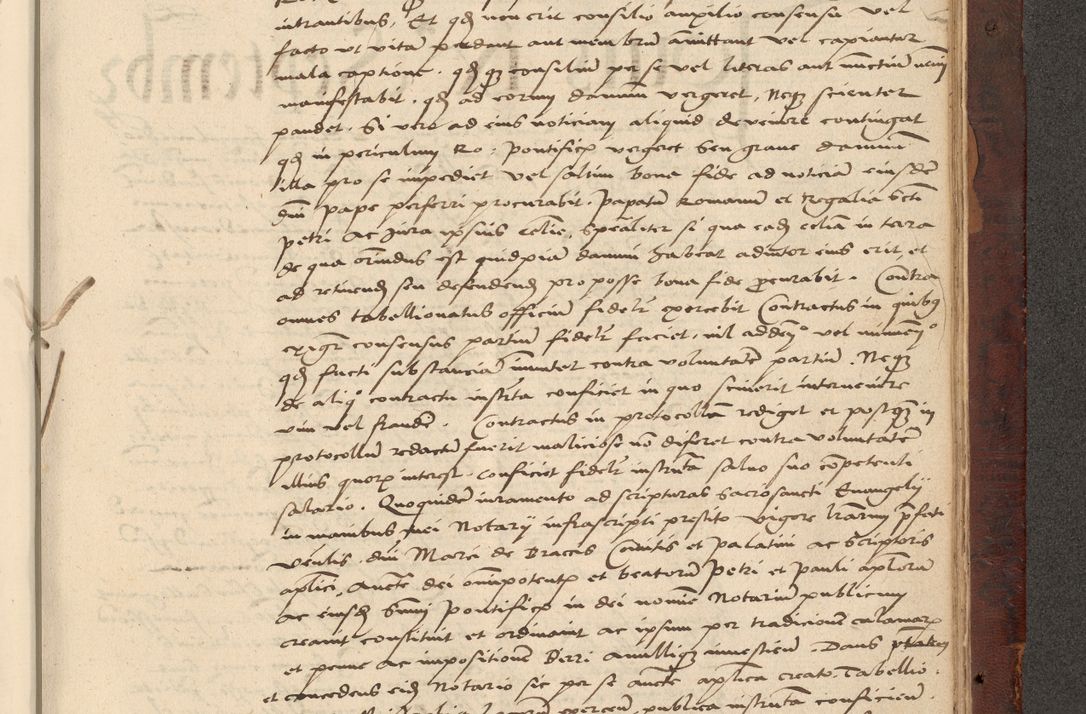 intrantibus, Et qd non erit consilio auxilio consensu vel
facto ut vita perdant aut membrum amittant vel capiantur
mala captione. qd qz consilium per se vel literas aut nuncium
manifestabit. qd ad eorum damnum vergeret, Neqz scienter
pandet. Si vero ad eius noticiam aliquid devenire contingat
qd in periculum Ro. Pontificis vergeret seu grave damnum
illa pro se impediet vel saltim bona fide ad noticiam eiusdem
dni Pape perferri procurabit. Papatum Romanum et Regalia scti
Petri ac Jura ipsius eclie, spealiter si qua eadem eclia in terra
de qua oriundus est quidpiam damni habeat adiutor eius erit, et
ad retinend seu defendend pro posse bona fide procurabit. Contra
omnes tabellionatus officium fidelr exercebit Contractus in quibz
exigr consensus partium fidelr faciet, nil addendo vel minuendo
qd facti substanciam immutet contra voluntatem partium. Neqz
de aliquo contractu instrumenta conficiet in quo sciverit intervenire
vim vel fraudem. Contractus in protocollum rediget et postqz in
protocollum redactum fuerit maliciose non diferet contra voluntatem
illius quorum interest. Conficiet fidelr instrumenta salvo suo competenti
salario. Quoquidem iuramento ad scripturas sacrosancti Evangelij
in manibus mei Notarij infrascripti prestito vigore lrarum
dni Marci de Bracis Comitis et Palatini ac Scriptoris
aplici, aucte dei omnipotentis et beatorum Petri et Pauli aplorum
ac eiusdem Summi Pontificis in dei nomine Notarium publicum
creavit constituit et ordinavit ac ipsum per tradicionem calamarii
et penne ac impositionem Birri anulliqz investivit. Dans
et concedens eidem Notario sic per se aucte aplica creato. Tabellio
publica instrumenta conficiendi.